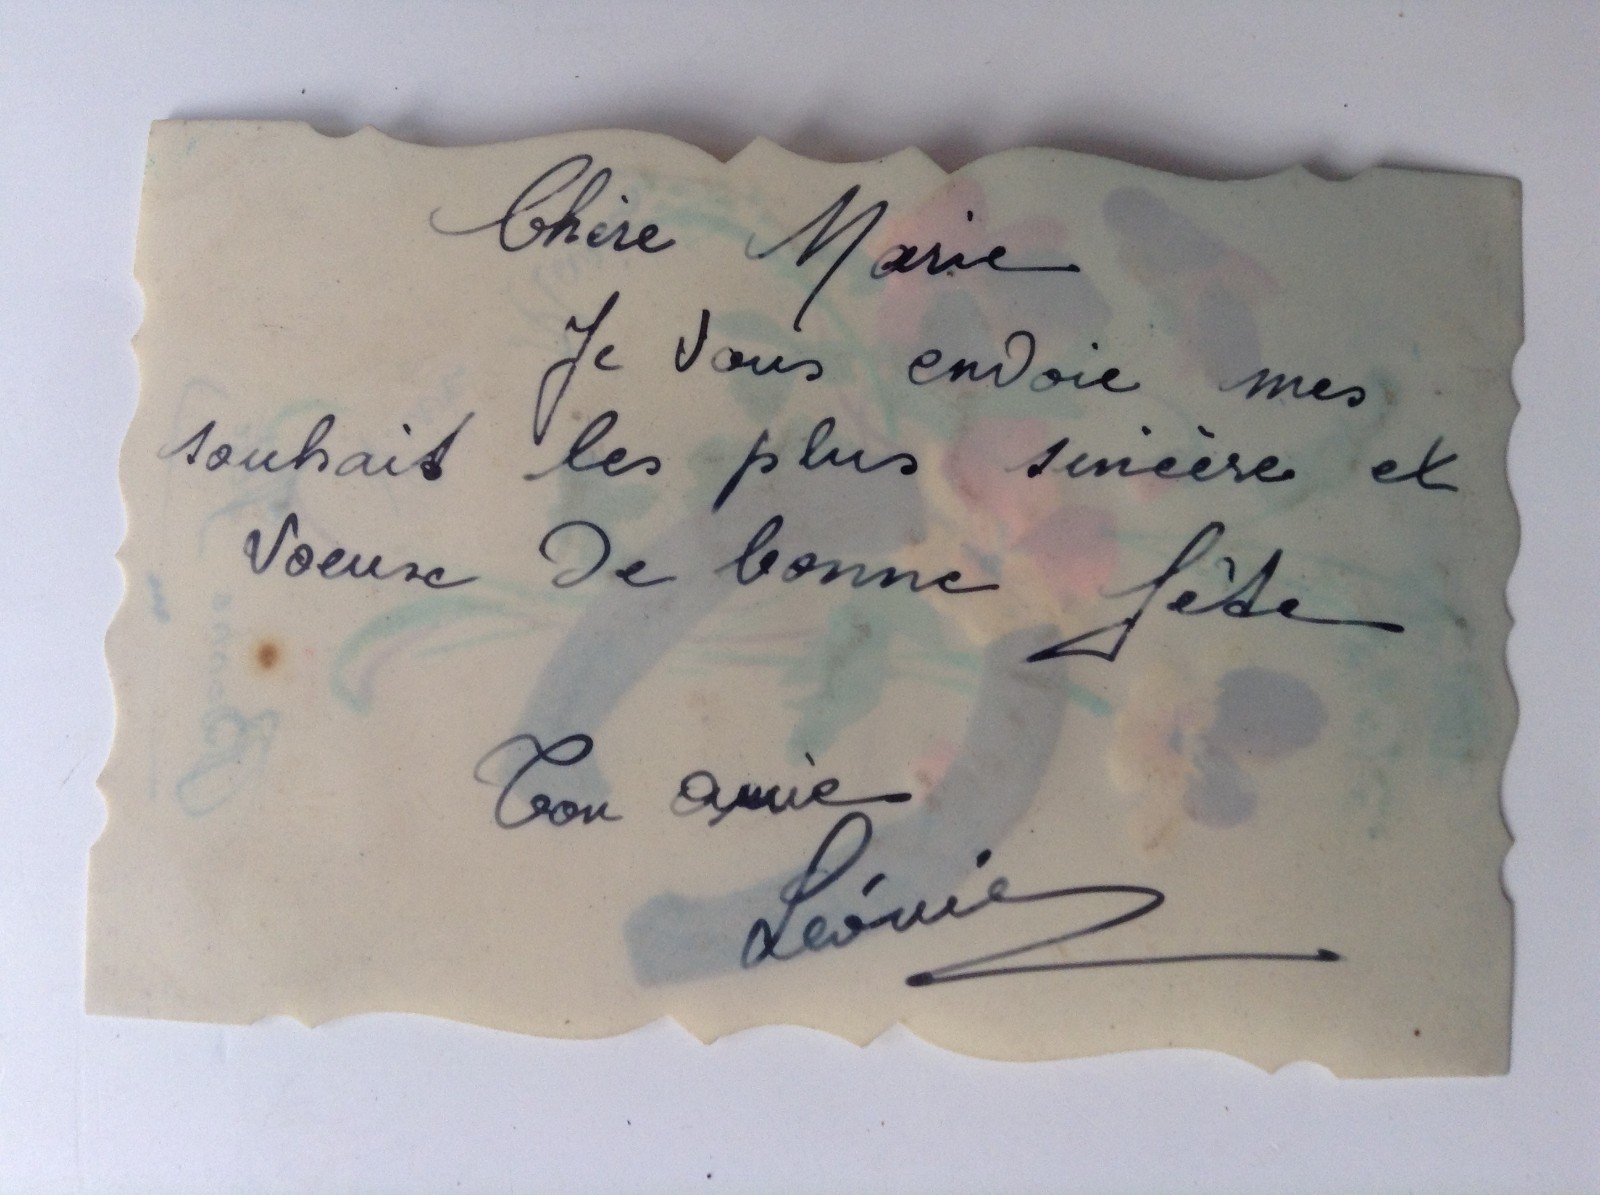 Chère Marie
Je vous envoie mes
souhait les plus sincère et
voeux de bonne fête
Ton amie
Léonie